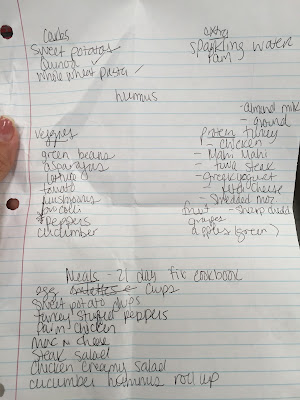 carbs
sweet potatos
Quinoa ✓
whole wheat pasta ✓
extra
sparkling water
ram
humus
veggies
green beans
asparagus
lettuce
tomato
mushrooms
brocolli
*peppers
cucumber
- almond milk
- ground
Protein turkey
- chicken
- Mahi Mahi
- tuna steak
- Greek yoguet
- feta cheese
- Shredded moz
- sharp chedd
fruit
grapes
apples (green)
Meals - 21 day fix cookbook
egg cups
sweet potato chips
turkey stuffed peppers
parm chicken
mac n cheese
steak salad
chicken creamy salad
cucumber hummus roll up